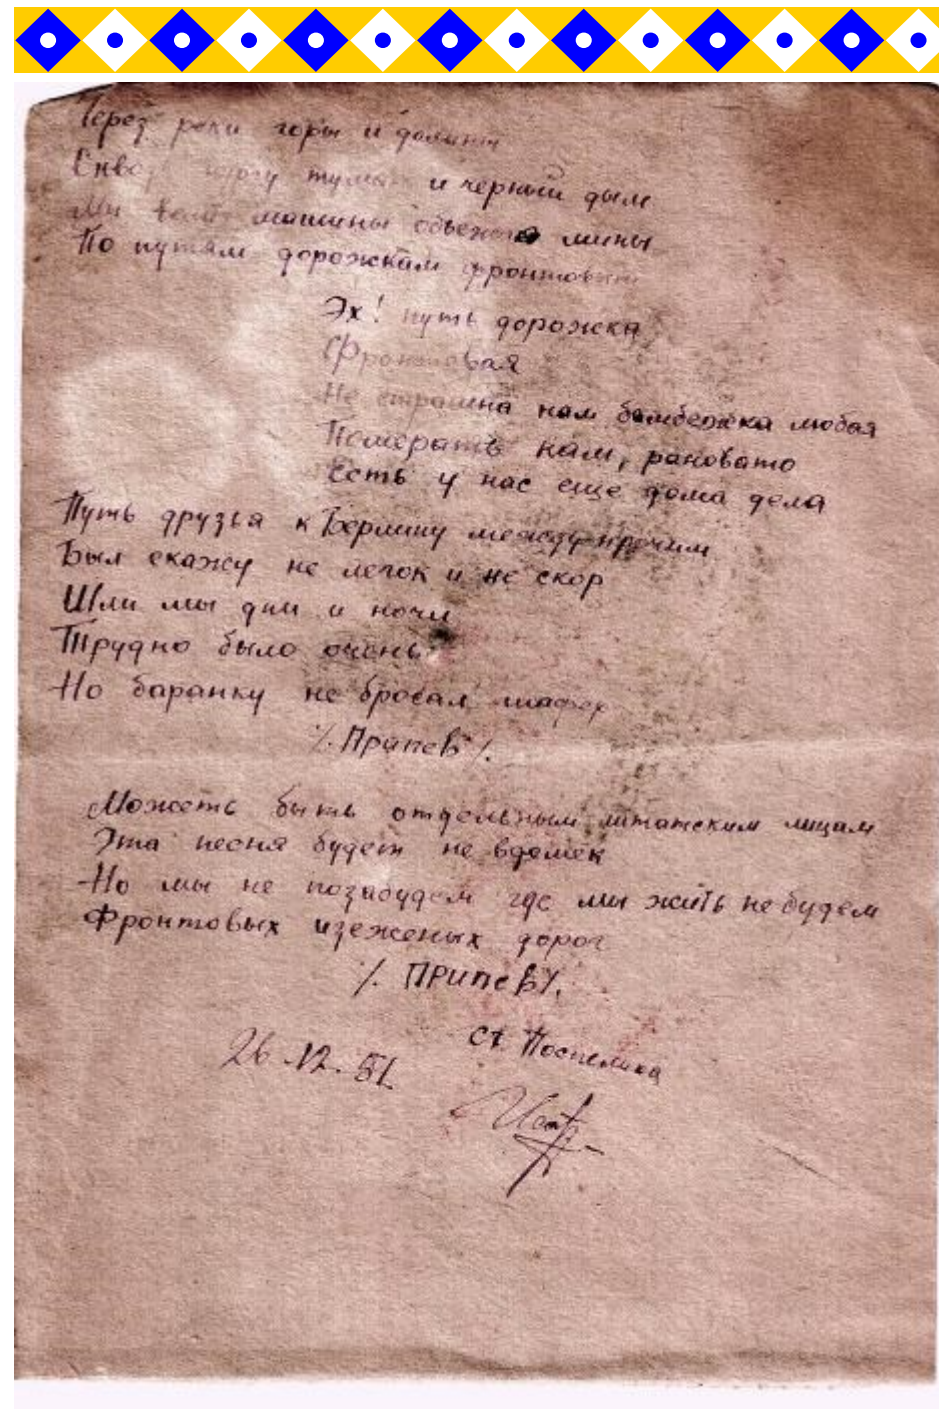 Через реки горы и долины
Сквозь пургу туман и черный дым
Мы вели машины объезжая мины
По путям дорожкам фронтовым
Эх! путь дорожка
Фронтовая
Не страшна нам бомбежка любая
Померать нам, рановато
Есть у нас еще дома дела
Путь друзья к Берлину между прочим
Был скажу не легок и не скор
Шли мы дни и ночи
Трудно было очень
Но баранку не бросал шафер
/. Припев /.
Можеть быть отдельным штатским лицам
Эта песня будет не вдомек
Но мы не позабудем где мы жить не будем
Фронтовых изеженых дорог
/. ПРИПЕВ /.
26.12.51